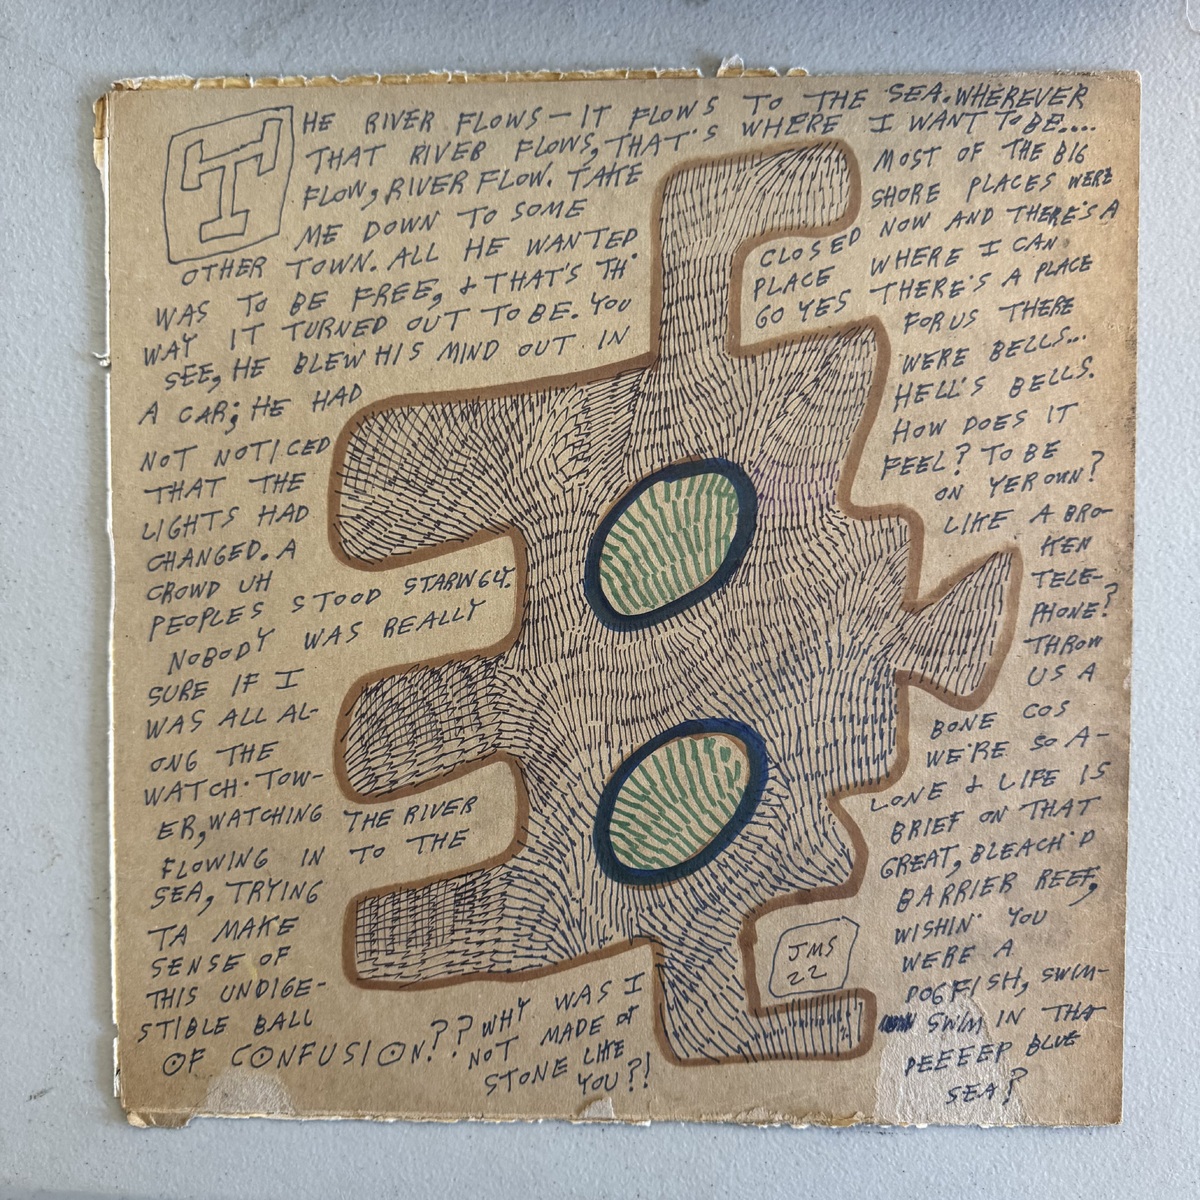 THE RIVER FLOWS — IT FLOWS TO THE SEA. WHEREVER
THAT RIVER FLOWS, THAT'S WHERE I WANT TO BE....
FLOW, RIVER FLOW. TAKE
ME DOWN TO SOME
OTHER TOWN. ALL HE WANTED
WAS TO BE FREE, & THAT'S TH'
WAY IT TURNED OUT TO BE. YOU
SEE, HE BLEW HIS MIND OUT IN
A CAR; HE HAD
NOT NOTICED
THAT THE
LIGHTS HAD
CHANGED. A
CROWD UH
PEOPLES STOOD STARIN' GLY.
NOBODY WAS REALLY
SURE IF I
WAS ALL AL-
ONG THE
WATCH-TOW-
ER, WATCHING THE RIVER
FLOWING IN TO THE
SEA, TRYING
TA MAKE
SENSE OF
THIS UNDIGE-
STIBLE BALL
OF CONFUSION?? WHY WAS I
NOT MADE OF
STONE LIKE
YOU?!
MOST OF THE BIG
SHORE PLACES WERE
CLOSED NOW AND THERE'S A
PLACE WHERE I CAN
GO YES THERE'S A PLACE
FOR US THERE
WERE BELLS...
HELL'S BELLS.
HOW DOES IT
FEEL? TO BE
ON YER OWN?
LIKE A BRO-
KEN
TELE-
PHONE?
THROW
US A
BONE COS
WE'RE SO A-
LONE & LIFE IS
BRIEF ON THAT
GREAT, BLEACH'D
BARRIER REEF,
WISHIN' YOU
WERE A
DOGFISH, SWIM-
SWIM IN THA
DEEEEP BLUE
SEA?
JMS
22